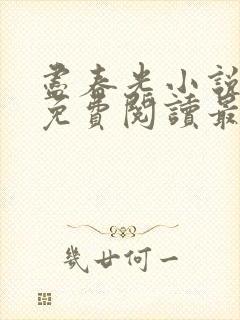 盡春光小說
免費閱讀最
幾廿何一